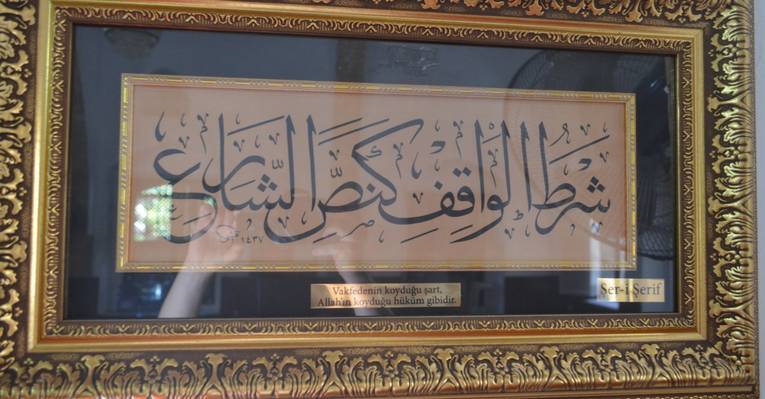 شَرْطُ الْوَاقِفِ كَنَصِّ الشَّارِعِ
١٤٣٧
Vakfedenin koyduğu şart,
Allah'ın koyduğu hüküm gibidir.
Şer-i Şerif